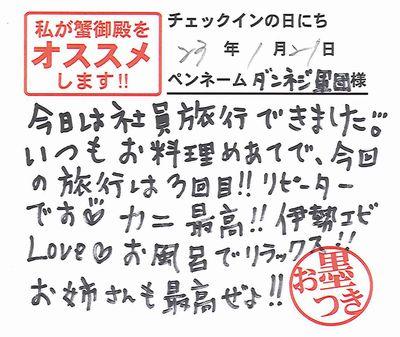 私が蟹御殿を
オススメ
します!!
チェックインの日にち
23年1月21日
ペンネーム ダンネジ軍団様
今日は社員旅行できました。
いつもお料理めあてで、今回
の旅行は3回目!! リピーター
です♡ カニ最高!! 伊勢エビ
Love♡ お風呂でリラックス!!
お姉さんも最高ぜよ!!
お墨つき